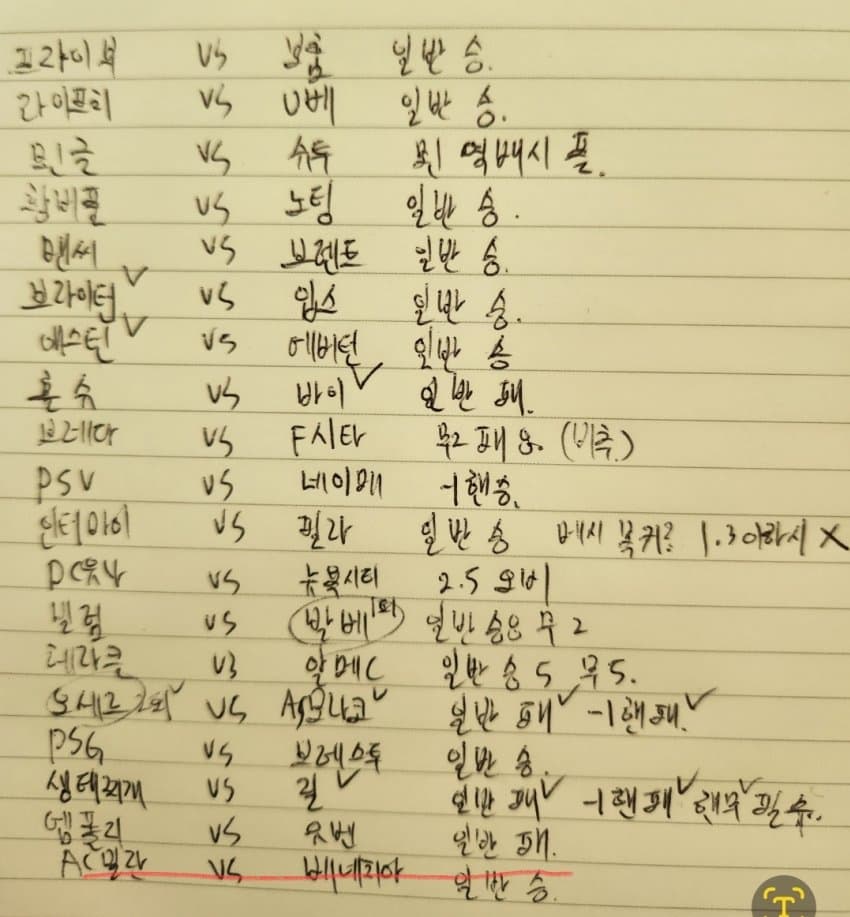 프라이부 VS 보훔 일반 승.
라이프치 VS U베 일반 승.
묀글 VS 슈투 묀 역배시 플.
함버풀 VS 노팅 일반 승.
맨씨 VS 브렌트 일반 승.
브라이턴 VS 입스 일반 승.
애스턴 VS 에버턴 일반 승
홀슈 VS 바이 일반 패.
브레다 VS F시타 무2 패8. (비추.)
PSV VS 네이메 -1핸승.
인터마이 VS 필라 일반 승 메시 복귀? 1.3이하시 X
DC유나 VS 뉴욕시티 2.5 오버
빌럼 VS 발베 1회 일반 승8 무2
헤라클 VS 알메C 일반 승5 무5.
오세르 2회 VS AS모나코 일반 패 -1핸패.
PSG VS 브레스투 일반 승.
생테티에 VS 릴 일반 패 -1핸패 핸무 필승.
엠폴리 VS 유벤 일반 패.
AC밀란 VS 베네치아 일반 승.